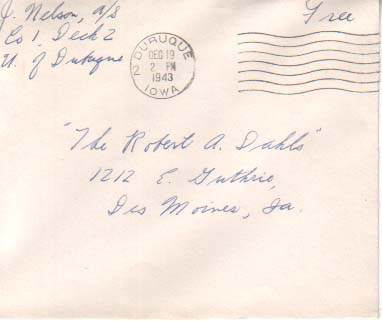 J. Nelson, A/S
Co 1, Deck 2
U. of Dubuque
Free
DUBUQUE
DEC 19
2 PM
1943
2
IOWA
"The Robert A. Dahls"
1212 E. Guthrie,
Des Moines, Ia.